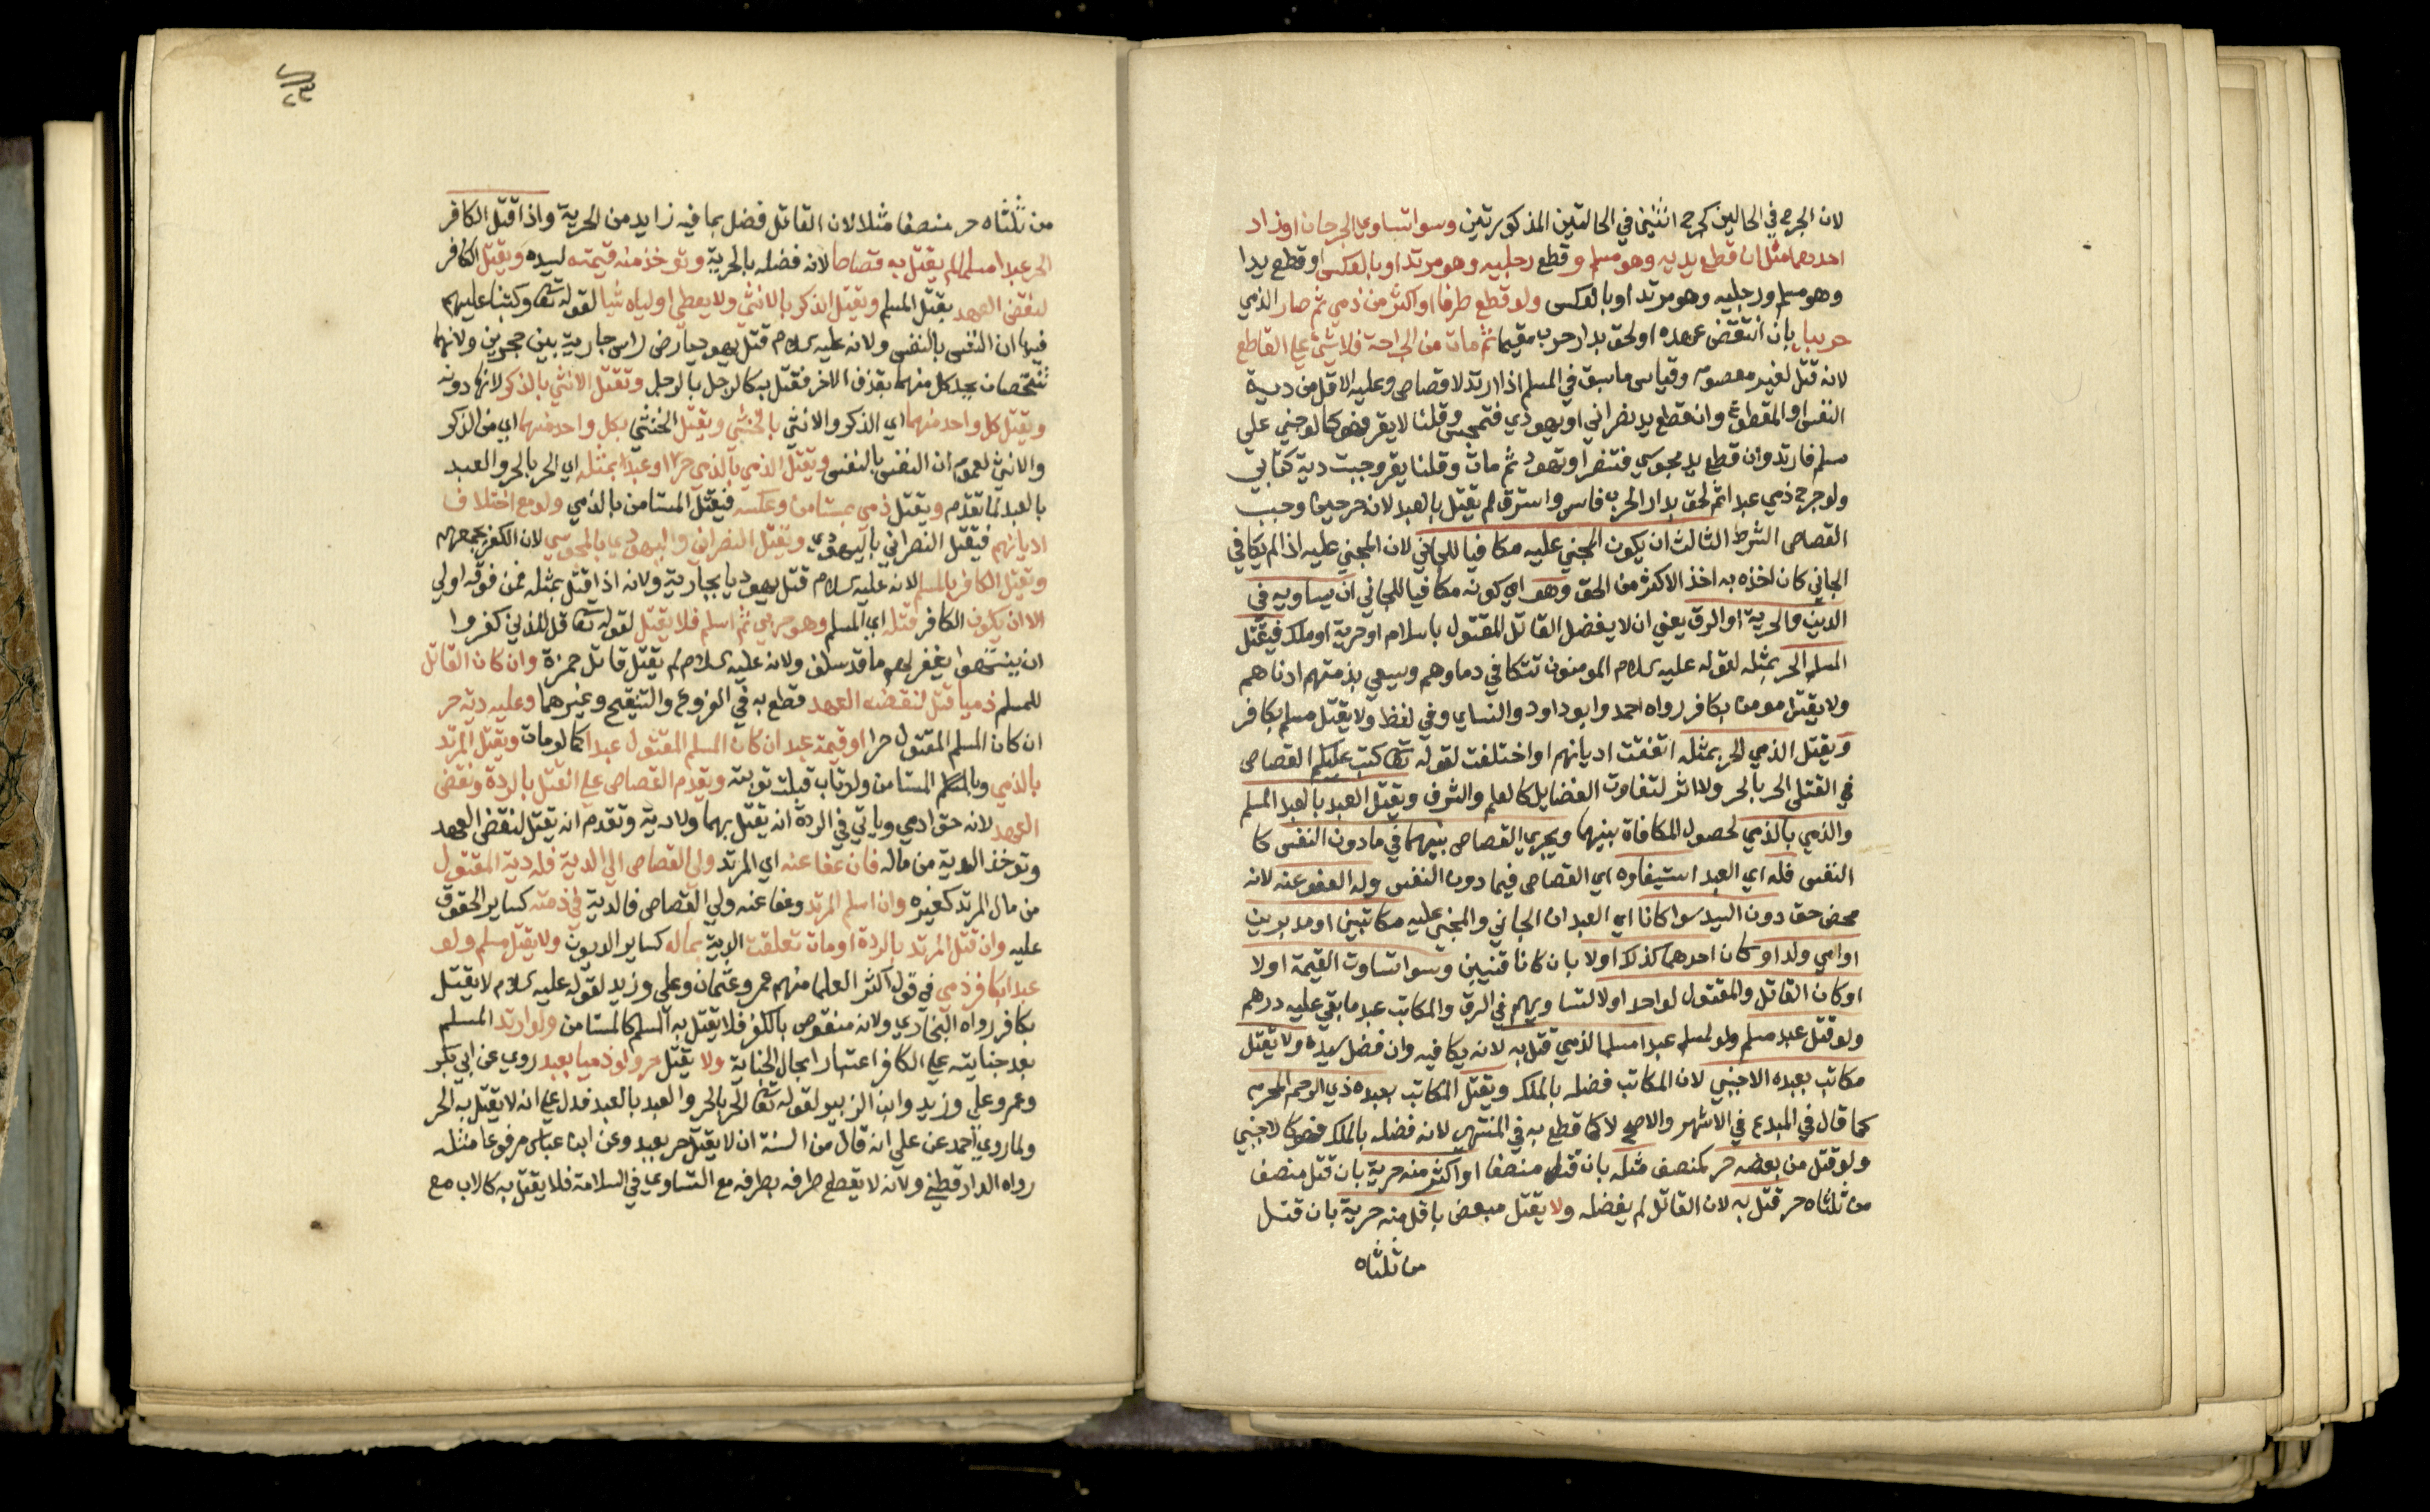 لان الجرح في الحالين كجرح اثنين في الحالتين المذكورتين وسوا تساوي الجرحان او زاد
احدهما مثل ان قطع يديه وهو مسلم وقطع رجليه وهو مرتد او بالعكس او قطع يدا
وهو مسلم ورجليه وهو مرتد او بالعكس ولو قطع طرفا او اكثر من ذمي ثم صار الذمي
حربيا بان انتقض عهده او لحق بدار حرب مقيما ثم مات من الجراحة فلا شي علي القاطع
لانه قتل لغير معصوم وقياس ما سبق في المسلم اذا ارتد لا قصاص وعليه الاقل من دية
النفس او المقطوع وان قطع يد نصراني او يهودي فتمجس وقلنا لا يقر فهو كما لو جني علي
مسلم فارتد وان قطع يد مجوسي فتنصر او تهود ثم مات وقلنا يقر وجبت دية كتابي
ولو جرح ذمي عبدا ثم لحق بدار الحرب فاسر واسترق لم يقتل بالعبد لانه حر حين وجب
القصاص الشرط الثالث ان يكون المجني عليه مكافيا للجاني لان المجني عليه اذا لم يكافي
الجاني كان اخذه به اخذ الاكثر من الحق وهو اي كونه مكافيا للجاني ان يساويه في
الدين والحرية او الرق يعني ان لا يفضل القاتل المقتول باسلام او حرية او ملك فيقتل
المسلم الحر بمثله لقوله عليه السلام المومنون تتكافي دماوهم ويسعي بذمتهم ادناهم
ولا يقتل مومن بكافر رواه احمد وابو داود والنساي وفي لفظ ولا يقتل مسلم بكافر
ويقتل الذمي الحر بمثله اتفقت اديانهم او اختلفت لقوله تعا كتب عليكم القصاص
في القتلى الحر بالحر ولا اثر لتفاوت الفضايل كالعلم والشرف ويقتل العبد بالعبد المسلم
والذمي بالذمي لحصول المكافاة بينهما ويجري القصاص بينهما في ما دون النفس كا
النفس فله اي العبد استيفاوه اي القصاص فيما دون النفس وله العفو عنه لانه
محض حق دون السيد سوا كانا اي العبدان الجاني والمجني عليه مكاتبين او مدبرين
او امي ولد او كان احدهما كذلك او لا بان كانا قنين وسوا تساوت القيمة او لا
او كان القاتل والمقتول لواحد او لا لتساويهم في الرق والمكاتب عبد ما بقي عليه درهم
ولو قتل عبد مسلم ولو لمسلم عبدا مسلما لذمي قتل به لانه يكافيه وان فضل سيده ولا يقتل
مكاتب بعبده الاجنبي لان المكاتب فضله بالملك ويقتل المكاتب بعبده ذي الرحم المحرم
كما قال في المبدع في الاشهر والاصح لا كما قطع به في المنتهي لانه فضله بالملك فهو كالاجنبي
ولو قتل من بعضه حر كمنصف مثله بان قتل منصفا او اكثر منه حرية بان قتل منصف
من ثلثاه حر قتل به لان القاتل لم يفضله ولا يقتل مبعض باقل منه حرية بان قتل
من ثلثاه
من ثلثاه حر منصفا مثلا لان القاتل فضل بما فيه زايد من الحرية واذا قتل الكافر
الحر عبدا مسلما لم يقتل به قصاصا لانه فضله بالحرية وتوخذ منه قيمته لسيده ويقتل الكافر
لنقض العهد بقتل المسلم ويقتل الذكر بالانثي ولا يعطي اولياه شيا لقوله تعا وكتبنا عليهم
فيها ان النفس بالنفس ولانه عليه السلام قتل يهوديا رض راس جارية بين حجرين ولانهما
شخصان يحد كل منهما بقذف الاخر فقتل به كالرجل بالرجل وتقتل الانثي بالذكر لانها دونه
ويقتل كل واحد منهما اي الذكر والانثي بالخنثي ويقتل الخنثي بكل واحد منهما اي من الذكر
والانثي لعموم ان النفس بالنفس ويقتل الذمي بالذمي حرا او عبدا بمثله اي الحر بالحر والعبد
بالعبد لما تقدم ويقتل ذمي بمستامن وعكسه فيقتل المستامن بالذمي ولو مع اختلاف
اديانهم فيقتل النصراني باليهودي ويقتل النصراني واليهودي بالمجوسي لان الكفر يجمعهم
ويقتل الكافر بالمسلم لانه عليه السلام قتل يهوديا بجارية ولانه اذا قتل بمثله فمن فوقه اولي
الا ان يكون الكافر قتله اي المسلم وهو حربي ثم اسلم فلا يقتل لقوله تعا قل للذين كفروا
ان ينتهوا يغفر لهم ما قد سلف ولانه عليه السلام لم يقتل قاتل حمزة وان كان القاتل
للمسلم ذميا قتل لنقضه العهد قطع به في الفروع والتنقيح وغيرهما وعليه دية حر
ان كان المسلم المقتول حرا او قيمة عبد ان كان المسلم المقتول عبدا كما لو مات ويقتل المرتد
بالذمي وبالمستامن ولو تاب قبلت توبته ويقدم القصاص علي القتل بالردة ونقض
العهد لانه حق ادمي وياتي في الردة انه يقتل بهما ولا دية وتقدم انه يقتل لنقض العهد
وتوخذ الدية من ماله فان عفا عنه اي المرتد ولي القصاص الي الدية فله دية المقتول
من مال المرتد كغيره وان اسلم المرتد وعفا عنه ولي القصاص فالدية في ذمته كساير الحقوق
عليه وان قتل المرتد بالردة او مات تعلقت الدية بماله كساير الديون ولا يقتل مسلم ولو
عبدا بكافر ذمي في قول اكثر العلما منهم عمر وعثمان وعلي وزيد لقوله عليه السلام لا يقتل
بكافر رواه البخاري ولانه منقوص بالكفر فلا يقتل به المسلم كالمستامن ولو ارتد المسلم
بعد جنايته علي الكافر اعتبارا بحال الجناية ولا يقتل حر ولو ذميا بعبد روي عن ابي بكر
وعمر وعلي وزيد وابن الزبير لقوله تعا الحر بالحر والعبد بالعبد فدل علي انه لا يقتل به الحر
ولما روي احمد عن علي انه قال من السنة ان لا يقتل حر بعبد وعن ابن عباس مرفوعا مثله
رواه الدارقطني ولانه لا يقطع طرفه بطرفه مع التساوي في السلامة فلا يقتل به كالاب مع